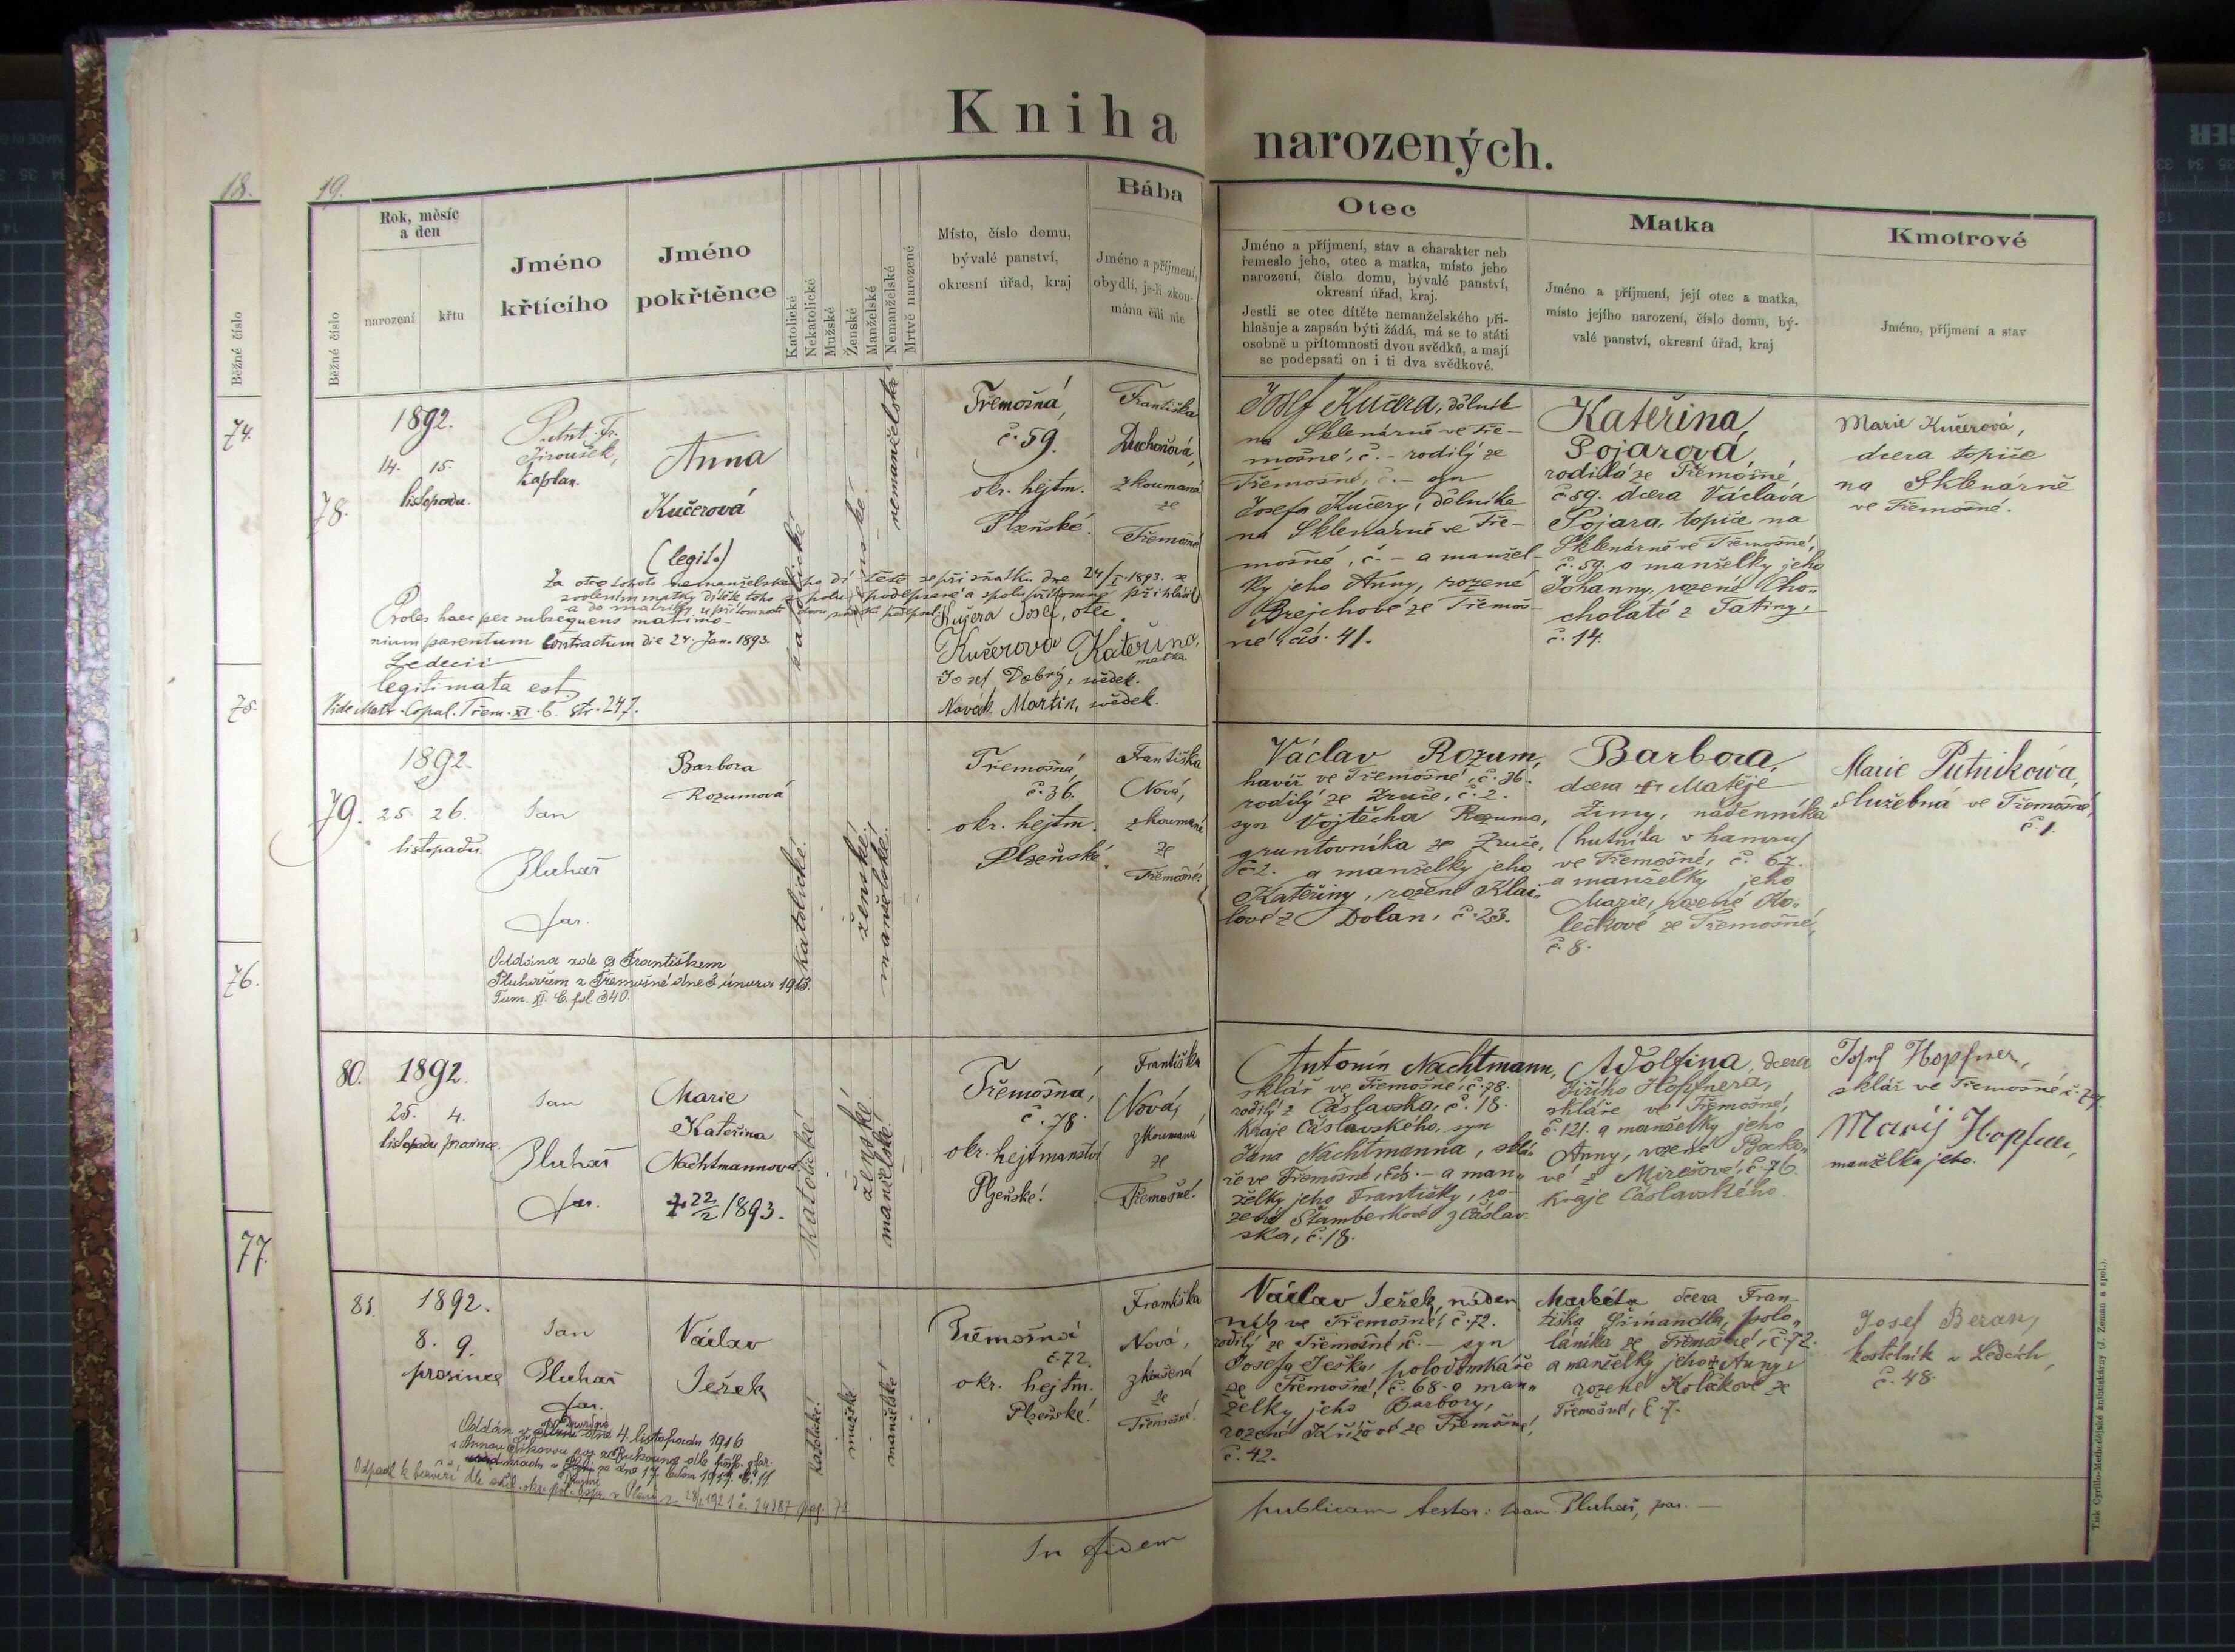 Kniha narozených.
18.
19.
Běžné číslo
Běžné číslo
Rok, měsíc
a den
narození
křtu
Jméno
křtícího
Jméno
pokřtěnce
Katolické
Nekatolické
Mužské
Ženské
Manželské
Nemanželské
Mrtvě narozené
Místo, číslo domu,
bývalé panství,
okresní úřad, kraj
Bába
Jméno a příjmení,
obydlí, je-li zkou-
mána čili nic
Otec
Jméno a příjmení, stav a charakter neb
řemeslo jeho, otec a matka, místo jeho
narození, číslo domu, bývalé panství,
okresní úřad, kraj.
Jestli se otec dítěte nemanželského při-
hlašuje a zapsán býti žádá, má se to státi
osobně u přítomnosti dvou svědků, a mají
se podepsati on i ti dva svědkové.
Matka
Jméno a příjmení, její otec a matka,
místo jejího narození, číslo domu, bý-
valé panství, okresní úřad, kraj
Kmotrové
Jméno, příjmení a stav
74.
75.
76.
77.
78.
1892.
14. 15.
listopadu.
P. Ant. Fr.
Jiroušek,
kaplan.
Anna
Kučerová
(legit.)
katolické
ženské
nemanželské
Třemošná,
č. 59.
okr. hejtm.
Plzeňské.
Františka
Duchoňová,
zkoumaná
ze
Třemošné
Josef Kučera, dělník
na Sklenárně ve Tře-
mošné, č. – rodilý ze
Třemošné, č. – syn
Josefa Kučery, dělníka
na Sklenárně ve Tře-
mošné, č. – a manžel-
ky jeho Anny, rozené
Brejchové ze Třemoš-
né čís. 41.
Kateřina
Pojarová,
rodilá ze Třemošné,
č 59. dcera Václava
Pojara, topiče na
Sklenárně ve Třemošné,
č. 59. a manželky jeho
Johanny, rozené Cho-
cholaté z Tatiny,
č. 14.
Marie Kučerová,
dcera topiče
na Sklenárně
ve Třemošné.
Za otce tohoto nemanželského dítěte se při sňatku dne 24/I. 1893. se
svolením matky dítěte toho
Proles haec per subsequens matrimo-
nium parentum contractum die 24. Jan. 1893.
Ledecii
legitimata est.
Vide Matr. Copul. Třem. XI. C. str. 247.
Kučera Josef, otec.
Kučerova Kateřina,
matka
Josef Dobrý, svědek.
Novák Martin, svědek.
79.
1892.
25. 26.
listopadu.
Jan
Pluhař
far.
Barbora
Rozumová
katolické
ženské
manželské
Třemošná,
č. 36.
okr. hejtm.
Plzeňské.
Františka
Nová,
zkoumaná
ze
Třemošné
Václav Rozum,
havíř ve Třemošné, č. 36.
rodilý ze Zruče, č. 2.
syn Vojtěcha Rozuma,
gruntovníka ze Zruče,
č. 2. a manželky jeho
Kateřiny, rozené Klai-
lové z Dolan, č. 23.
Barbora,
dcera † Matěje
Zimy, nádenníka
(hutníka v hamru)
ve Třemošné, č. 67.
a manželky jeho
Marie, rozené Ko-
lečkové ze Třemošné,
č. 8.
Marie Putniková,
služebná ve Třemošné,
č. 1.
Oddána zde s Františkem
Pluhařem z Třemošné dne 3. února 1913.
Tum. XI. C. fol. 340.
80.
1892.
25. 4.
listopadu prosince.
Jan
Pluhař
far.
Marie
Kateřina
Nachtmannová
† 22/2 1893.
katolické
ženské
manželské
Třemošná,
č. 78.
okr. hejtmanství
Plzeňské.
Františka
Nová,
zkoumaná
ze
Třemošné.
Antonín Nachtmann,
sklář ve Třemošné, č. 78.
rodilý z Čáslavska, č. 18.
kraje Čáslavského, syn
Jana Nachtmanna, sklá-
ře ve Třemošné, čís. – a man-
želky jeho Františky, ro-
zené Štamberkové z Čáslav-
ska, č. 18.
Adolfina, dcera
Jiřího Hopfnera,
skláře ve Třemošné,
č. 121. a manželky jeho
Anny, rozené
vé z Mirešově, č. 76.
kraje Čáslavského.
Josef Hopfner,
sklář ve Třemošné
Marij Hopfner,
manželka jeho.
81.
1892.
8. 9.
prosince
Jan
Pluhař
far.
Václav
Ježek
katolické
mužské
manželské
Třemošná
č. 72.
okr. hejtm.
Plzeňské.
Františka
Nová,
zkoušená
ze
Třemošné.
Václav Ježek, náden-
ník ve Třemošné, č. 72.
rodilý ze Třemošné, č. – syn
Josefa Ježka, polovomkáře
ze Třemošné, č. 68. a man-
želky jeho Barbory,
rozené Křížové ze Třemošné,
č. 42.
Markéta dcera Fran-
tiška Šimandla, polo-
láníka ze Třemošné, č. 72.
a manželky jeho † Anny,
rozené Kolákové ze
Třemošné, č. 7.
Josef Beran,
kostelník v Ledcích,
č. 48.
Oddán 4. listopadu 1916
s Annou
ze dne 17. ledna 1917 č. 11
Odpadl k bezvěří dle
In fidem
publicam testor: Joan. Pluhař, par. –
Tisk Cyrillo-Methodějské knihtiskárny (J. Zeman a spol.).